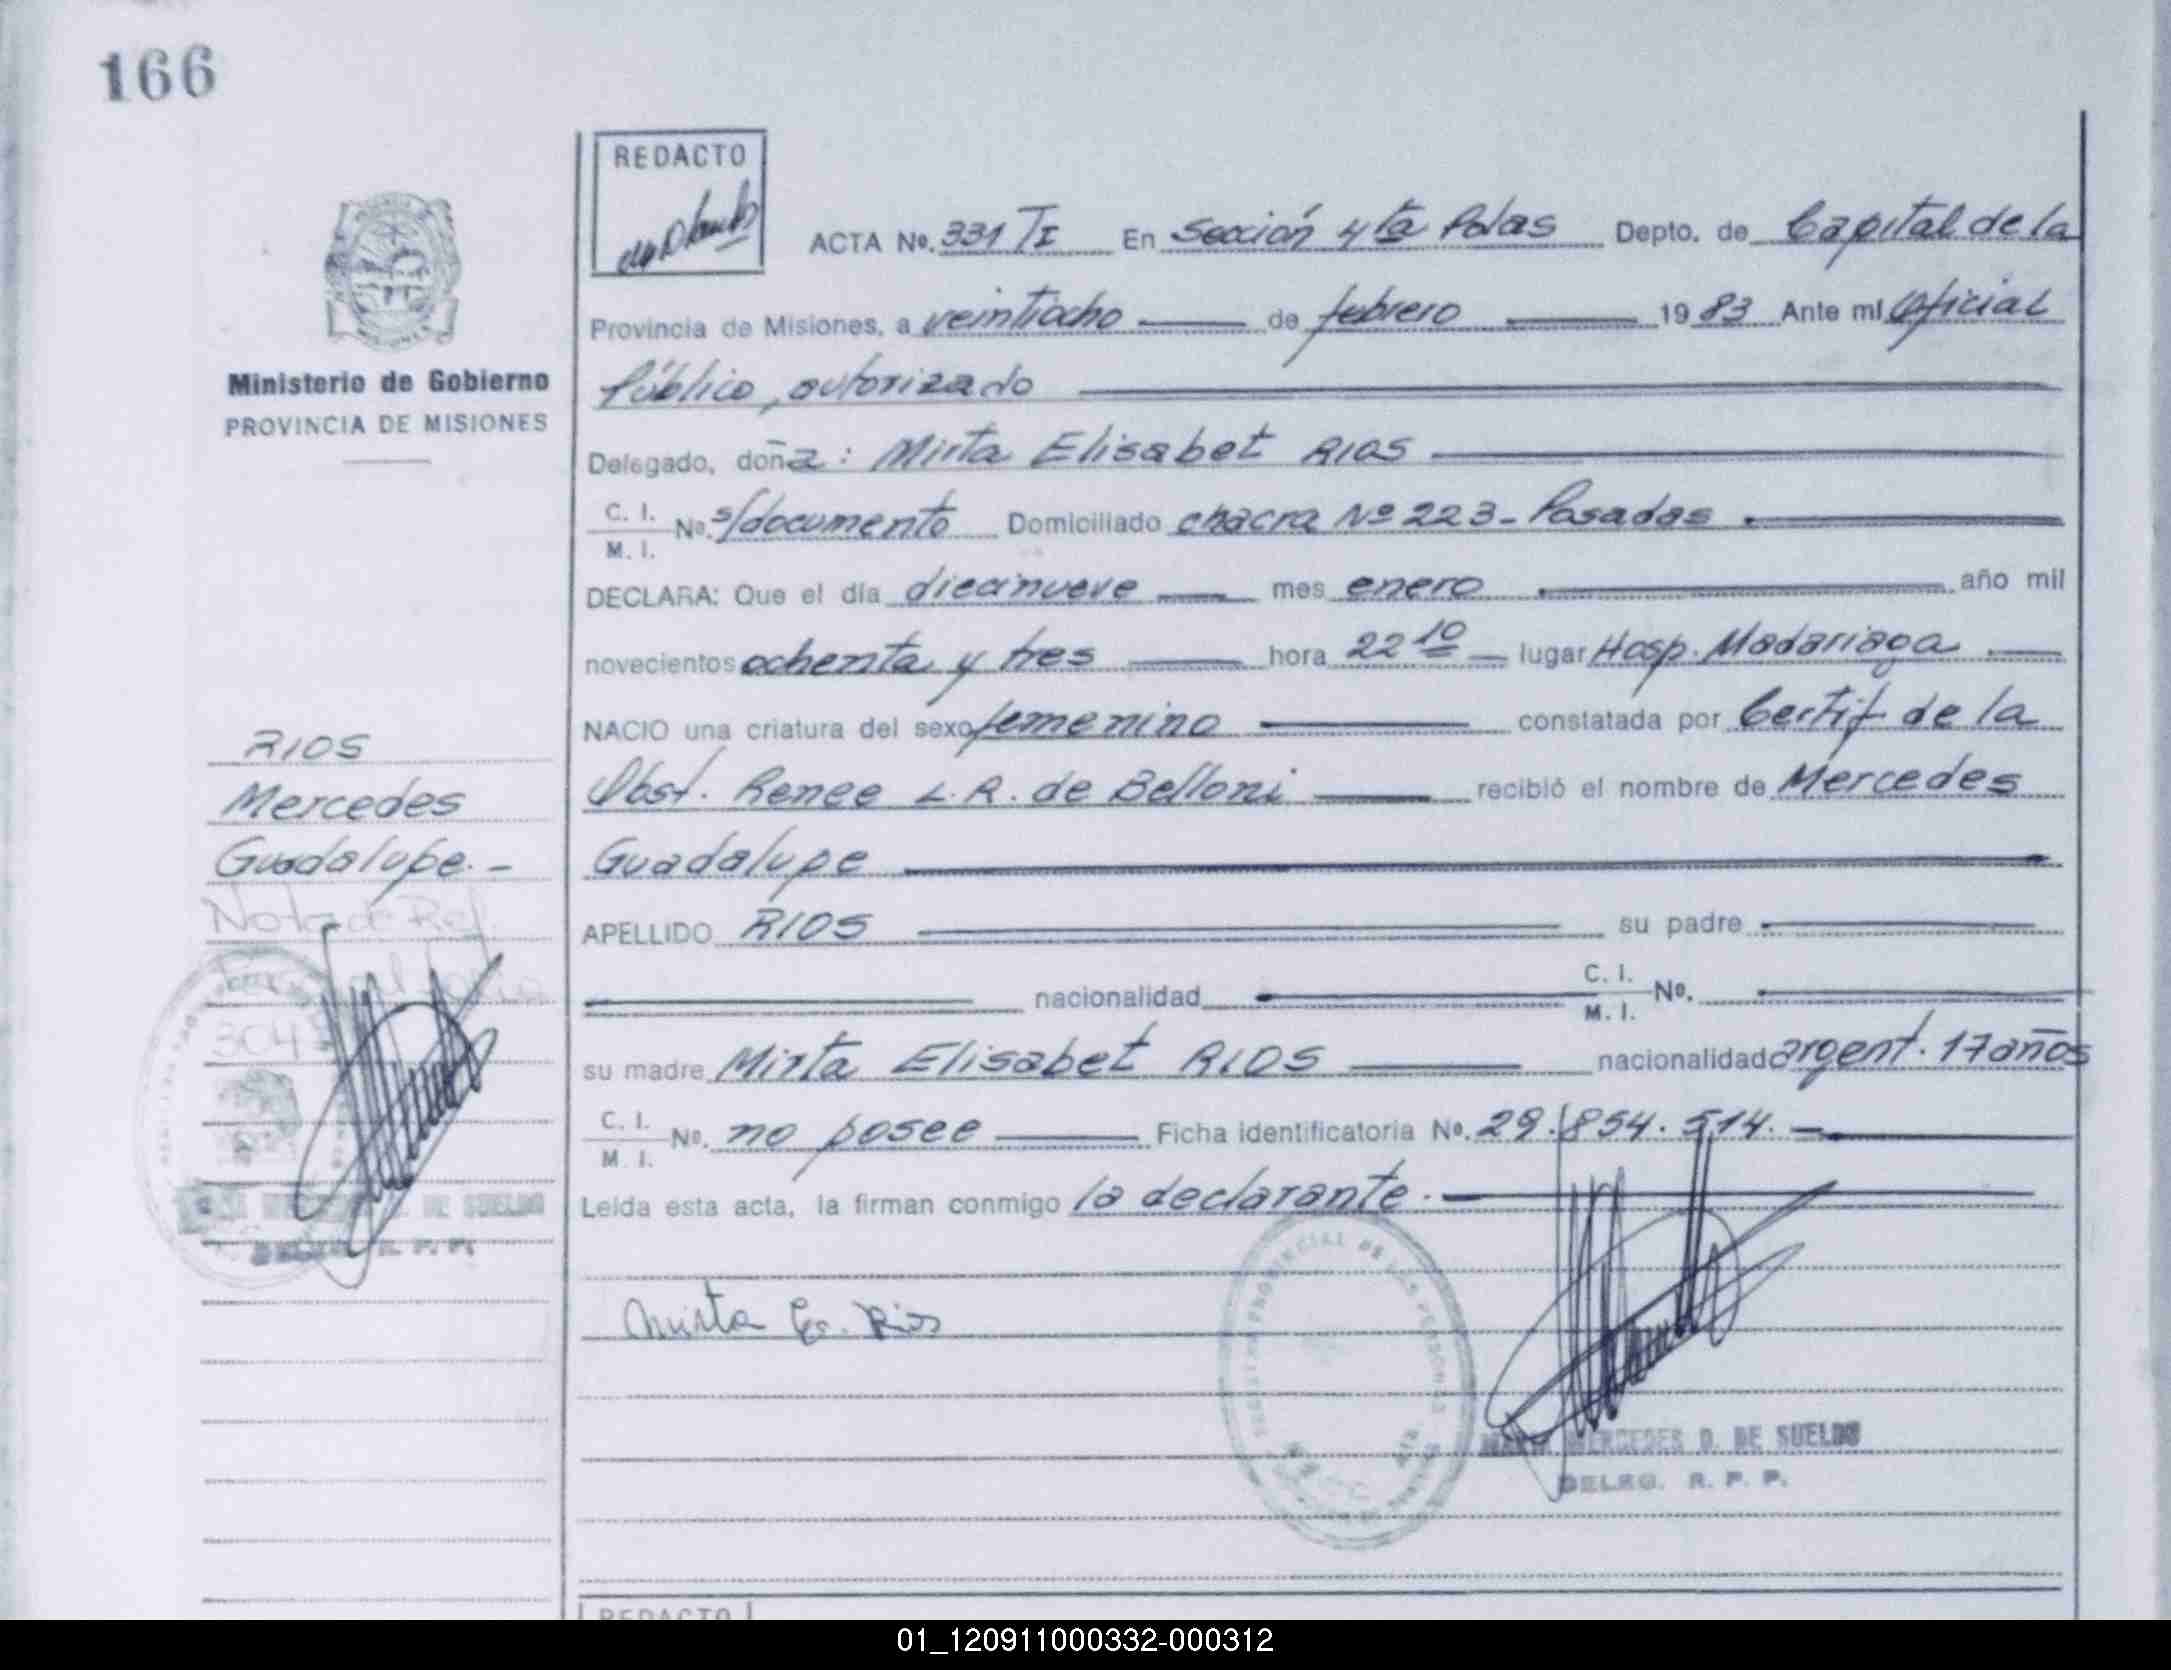 166
REDACTO
ACTA Nº. 331 TI En Sección 4ta Pdas Depto. de Capital de la
Provincia de Misiones, a veintiocho de febrero 1983 Ante mí Oficial
Ministerio de Gobierno
PROVINCIA DE MISIONES
Público, autorizado
Delegado, doña: Mirta Elisabet RIOS
C. I.
M. I. Nº. s/documento Domiciliado chacra Nº 223 - Posadas
DECLARA: Que el día diecinueve mes enero año mil
novecientos ochenta y tres hora 22 10 lugar Hosp. Madariaga
NACIO una criatura del sexo femenino constatada por Certif de la
Obst. Renee L. R. de Belloni recibió el nombre de Mercedes
Guadalupe
APELLIDO RIOS su padre
nacionalidad C. I.
M. I. Nº.
su madre Mirta Elisabet RIOS nacionalidad argent. 17 años
C. I.
M. I. Nº. no posee Ficha identificatoria Nº. 29.854.514.
Leída esta acta, la firman conmigo la declarante.
Mirta E. Rios
MERCEDES D. DE SUELDO
DELEG. R. P. P.
RIOS
Mercedes
Guadalupe. -
Nota de Ref.
304
DE SUELDO
R. P. P.
REDACTO
01_120911000332-000312